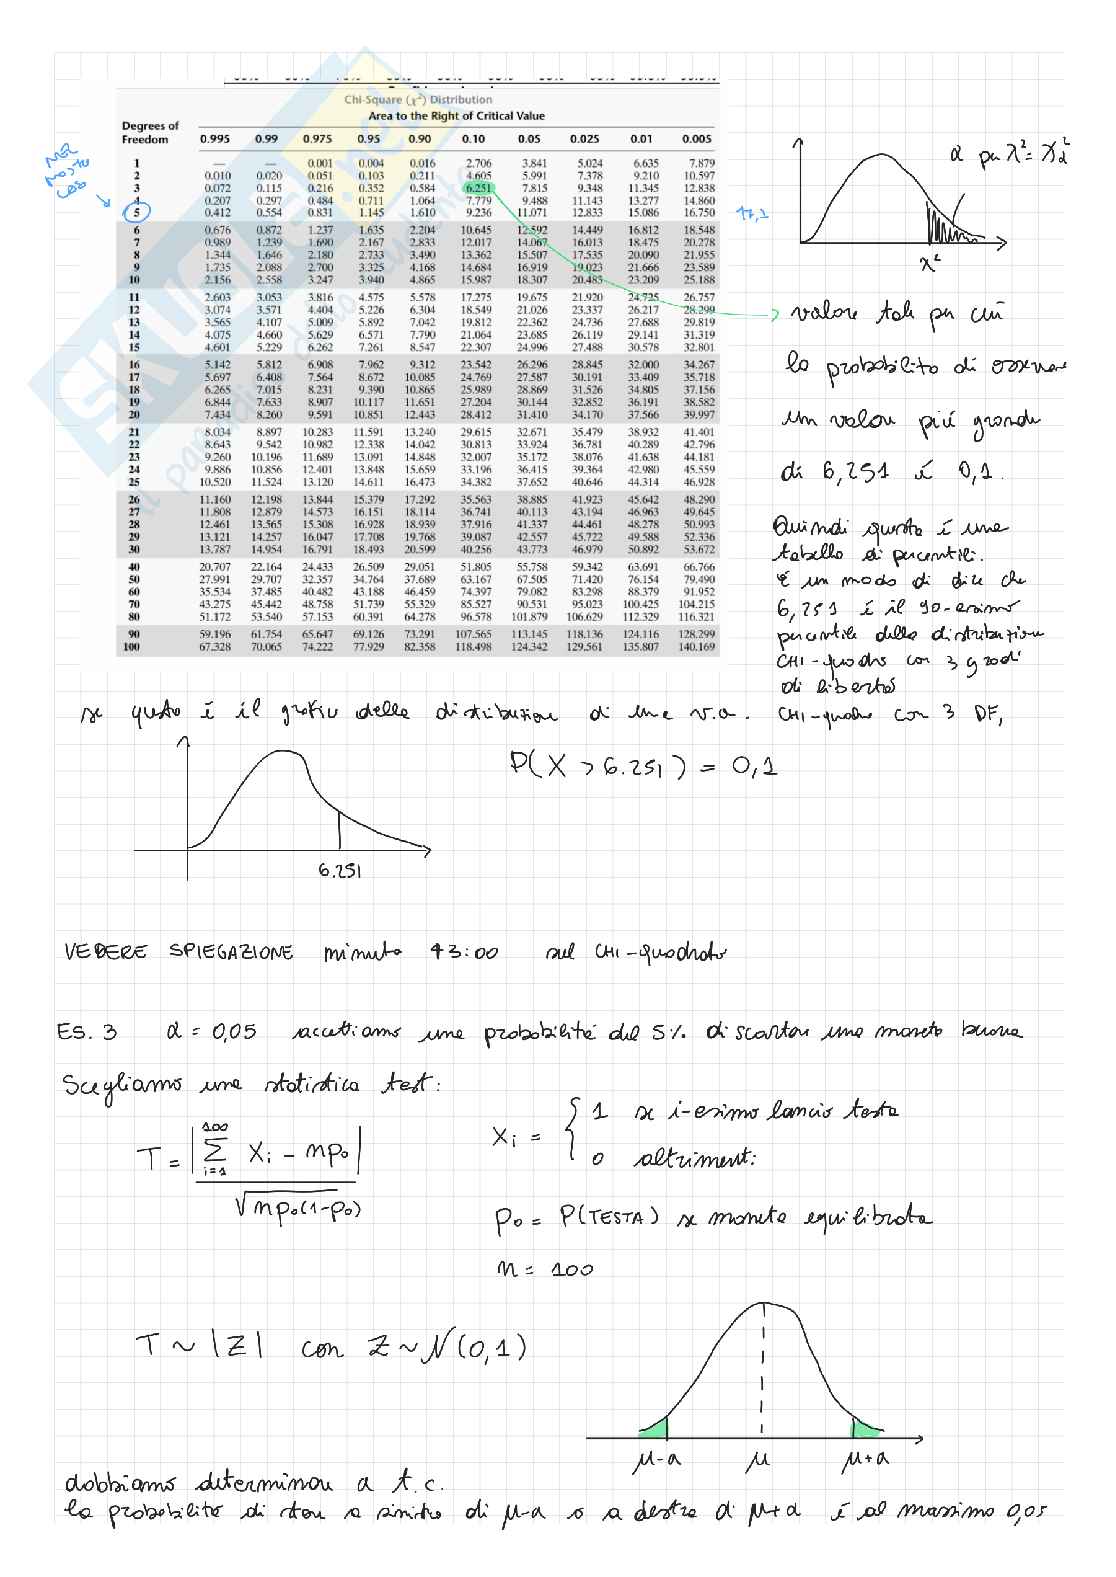 Chi-Square (χ²) Distribution
Area to the Right of Critical Value
Degrees of
Freedom 0.995 0.99 0.975 0.95 0.90 0.10 0.05 0.025 0.01 0.005
1 — — 0.001 0.004 0.016 2.706 3.841 5.024 6.635 7.879
2 0.010 0.020 0.051 0.103 0.211 4.605 5.991 7.378 9.210 10.597
3 0.072 0.115 0.216 0.352 0.584 6.251 7.815 9.348 11.345 12.838
4 0.207 0.297 0.484 0.711 1.064 7.779 9.488 11.143 13.277 14.860
5 0.412 0.554 0.831 1.145 1.610 9.236 11.071 12.833 15.086 16.750
6 0.676 0.872 1.237 1.635 2.204 10.645 12.592 14.449 16.812 18.548
7 0.989 1.239 1.690 2.167 2.833 12.017 14.067 16.013 18.475 20.278
8 1.344 1.646 2.180 2.733 3.490 13.362 15.507 17.535 20.090 21.955
9 1.735 2.088 2.700 3.325 4.168 14.684 16.919 19.023 21.666 23.589
10 2.156 2.558 3.247 3.940 4.865 15.987 18.307 20.483 23.209 25.188
11 2.603 3.053 3.816 4.575 5.578 17.275 19.675 21.920 24.725 26.757
12 3.074 3.571 4.404 5.226 6.304 18.549 21.026 23.337 26.217 28.299
13 3.565 4.107 5.009 5.892 7.042 19.812 22.362 24.736 27.688 29.819
14 4.075 4.660 5.629 6.571 7.790 21.064 23.685 26.119 29.141 31.319
15 4.601 5.229 6.262 7.261 8.547 22.307 24.996 27.488 30.578 32.801
16 5.142 5.812 6.908 7.962 9.312 23.542 26.296 28.845 32.000 34.267
17 5.697 6.408 7.564 8.672 10.085 24.769 27.587 30.191 33.409 35.718
18 6.265 7.015 8.231 9.390 10.865 25.989 28.869 31.526 34.805 37.156
19 6.844 7.633 8.907 10.117 11.651 27.204 30.144 32.852 36.191 38.582
20 7.434 8.260 9.591 10.851 12.443 28.412 31.410 34.170 37.566 39.997
21 8.034 8.897 10.283 11.591 13.240 29.615 32.671 35.479 38.932 41.401
22 8.643 9.542 10.982 12.338 14.042 30.813 33.924 36.781 40.289 42.796
23 9.260 10.196 11.689 13.091 14.848 32.007 35.172 38.076 41.638 44.181
24 9.886 10.856 12.401 13.848 15.659 33.196 36.415 39.364 42.980 45.559
25 10.520 11.524 13.120 14.611 16.473 34.382 37.652 40.646 44.314 46.928
26 11.160 12.198 13.844 15.379 17.292 35.563 38.885 41.923 45.642 48.290
27 11.808 12.879 14.573 16.151 18.114 36.741 40.113 43.194 46.963 49.645
28 12.461 13.565 15.308 16.928 18.939 37.916 41.337 44.461 48.278 50.993
29 13.121 14.257 16.047 17.708 19.768 39.087 42.557 45.722 49.588 52.336
30 13.787 14.954 16.791 18.493 20.599 40.256 43.773 46.979 50.892 53.672
40 20.707 22.164 24.433 26.509 29.051 51.805 55.758 59.342 63.691 66.766
50 27.991 29.707 32.357 34.764 37.689 63.167 67.505 71.420 76.154 79.490
60 35.534 37.485 40.482 43.188 46.459 74.397 79.082 83.298 88.379 91.952
70 43.275 45.442 48.758 51.739 55.329 85.527 90.531 95.023 100.425 104.215
80 51.172 53.540 57.153 60.391 64.278 96.578 101.879 106.629 112.329 116.321
90 59.196 61.754 65.647 69.126 73.291 107.565 113.145 118.136 124.116 128.299
100 67.328 70.065 74.222 77.929 82.358 118.498 124.342 129.561 135.807 140.169
nel
nostro
caso
47,1
α per χ² = χ²α
χ²
valore tale per cui
la probabilità di osservare
un valore più grande
di 6,251 è 0,1.
Quindi questa è una
tabella di percentili.
È un modo di dire che
6,251 è il 90-esimo
percentile della distribuzione
CHI-quadro con 3 gradi
di libertà
se questo è il grafico della distribuzione di una v.a. CHI-quadro con 3 DF,
P(X > 6.251) = 0,1
6.251
VEDERE SPIEGAZIONE minuto 43:00 sul CHI-quadrato
ES. 3 α = 0,05 accettiamo una probabilità del 5% di scartare una moneta buona
Scegliamo una statistica test:
T = |∑_{i=1}^{100} Xi - np₀| / √np₀(1-p₀)
Xi = { 1 se i-esimo lancio testa
0 altrimenti
p₀ = P(TESTA) se moneta equilibrata
n = 100
T ~ |Z| con Z ~ N(0,1)
μ-a μ μ+a
dobbiamo determinare a t.c.
la probabilità di stare a sinistra di μ-a o a destra di μ+a è al massimo 0,05